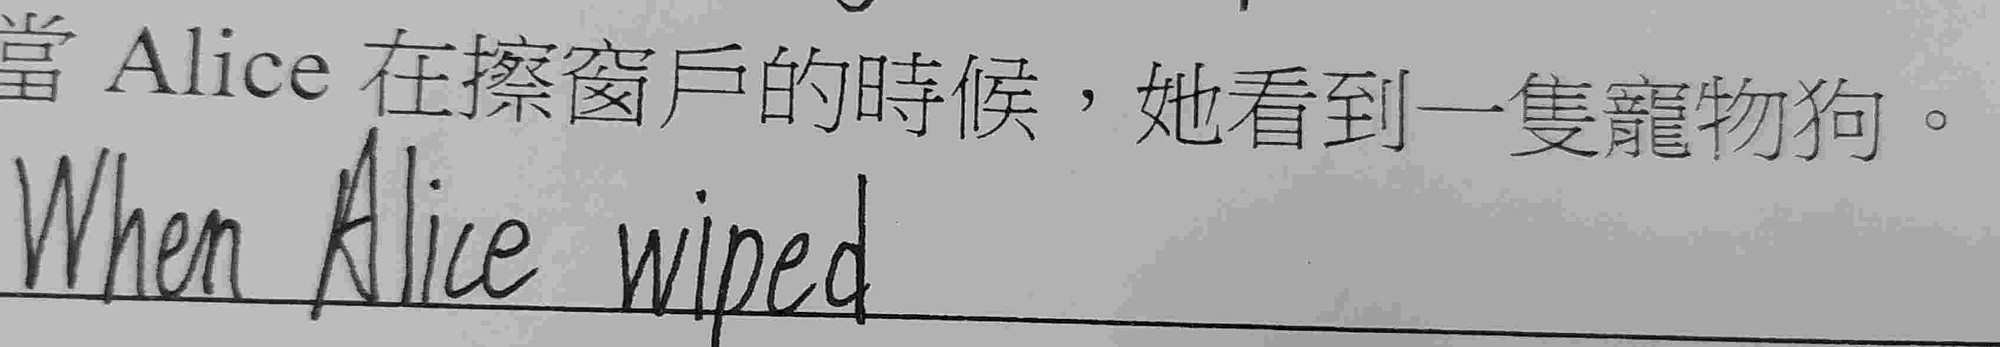 當 Alice 在擦窗戶的時候，她看到一隻寵物狗。
When Alice wiped